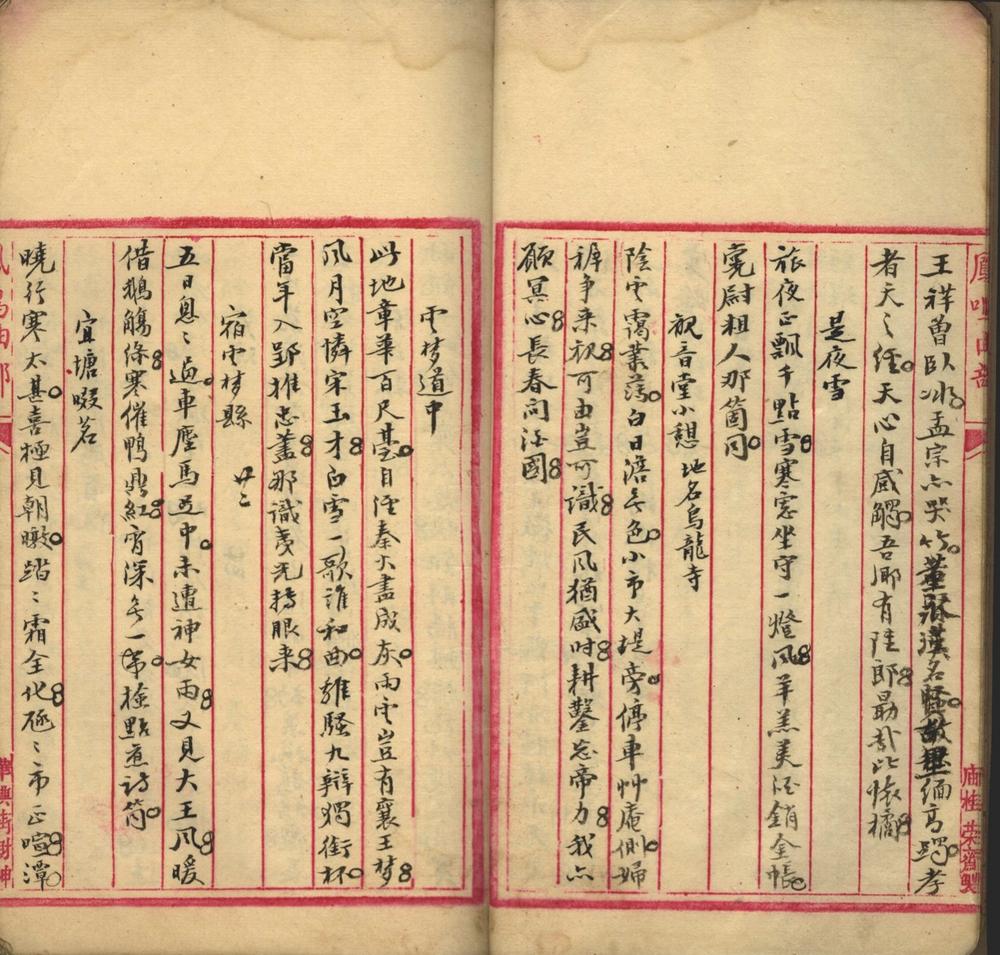 王祥曾臥冰孟宗亦哭竹董名緬高躅孝
者天之經天心自感觸吾鄉有陸郎勗哉此懷橘
是夜雪
旅夜正飄千點雪寒窓坐守一燈風羊羔美酒銷金帳
甕尉粗人那箇同
觀音堂小憩 地名烏龍寺
陰雲靄叢薄白日澹無色小市大堤旁停車艸庵側婦
稺爭來觀可由豈可識民風猶盛时耕鑿忘帝力我亦
願冥心長春問泽國
雲梦道中
此地章華百尺臺自経秦火盡成灰雨雲豈有襄王梦
風月空憐宋玉才白雪一歌誰和曲離騷九辯獨銜杯
當年入郢推忠盖那識夷光抉眼来
宿雲梦縣 廿二
五日恩〻過車塵馬足中未遭神女雨又見大王風暖
借鵝觴條寒催鴨鼎紅宵深無一事檢點煮詩筒
宜塘啜茗
曉行寒太甚喜極見朝暾踏〻霜全化𠅤〻市正喧潭
鳳鳴
華興街財神
廟桂榮齋製